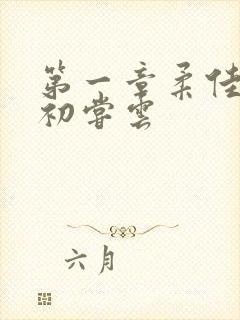 第一章柔佳
初尝云
六月